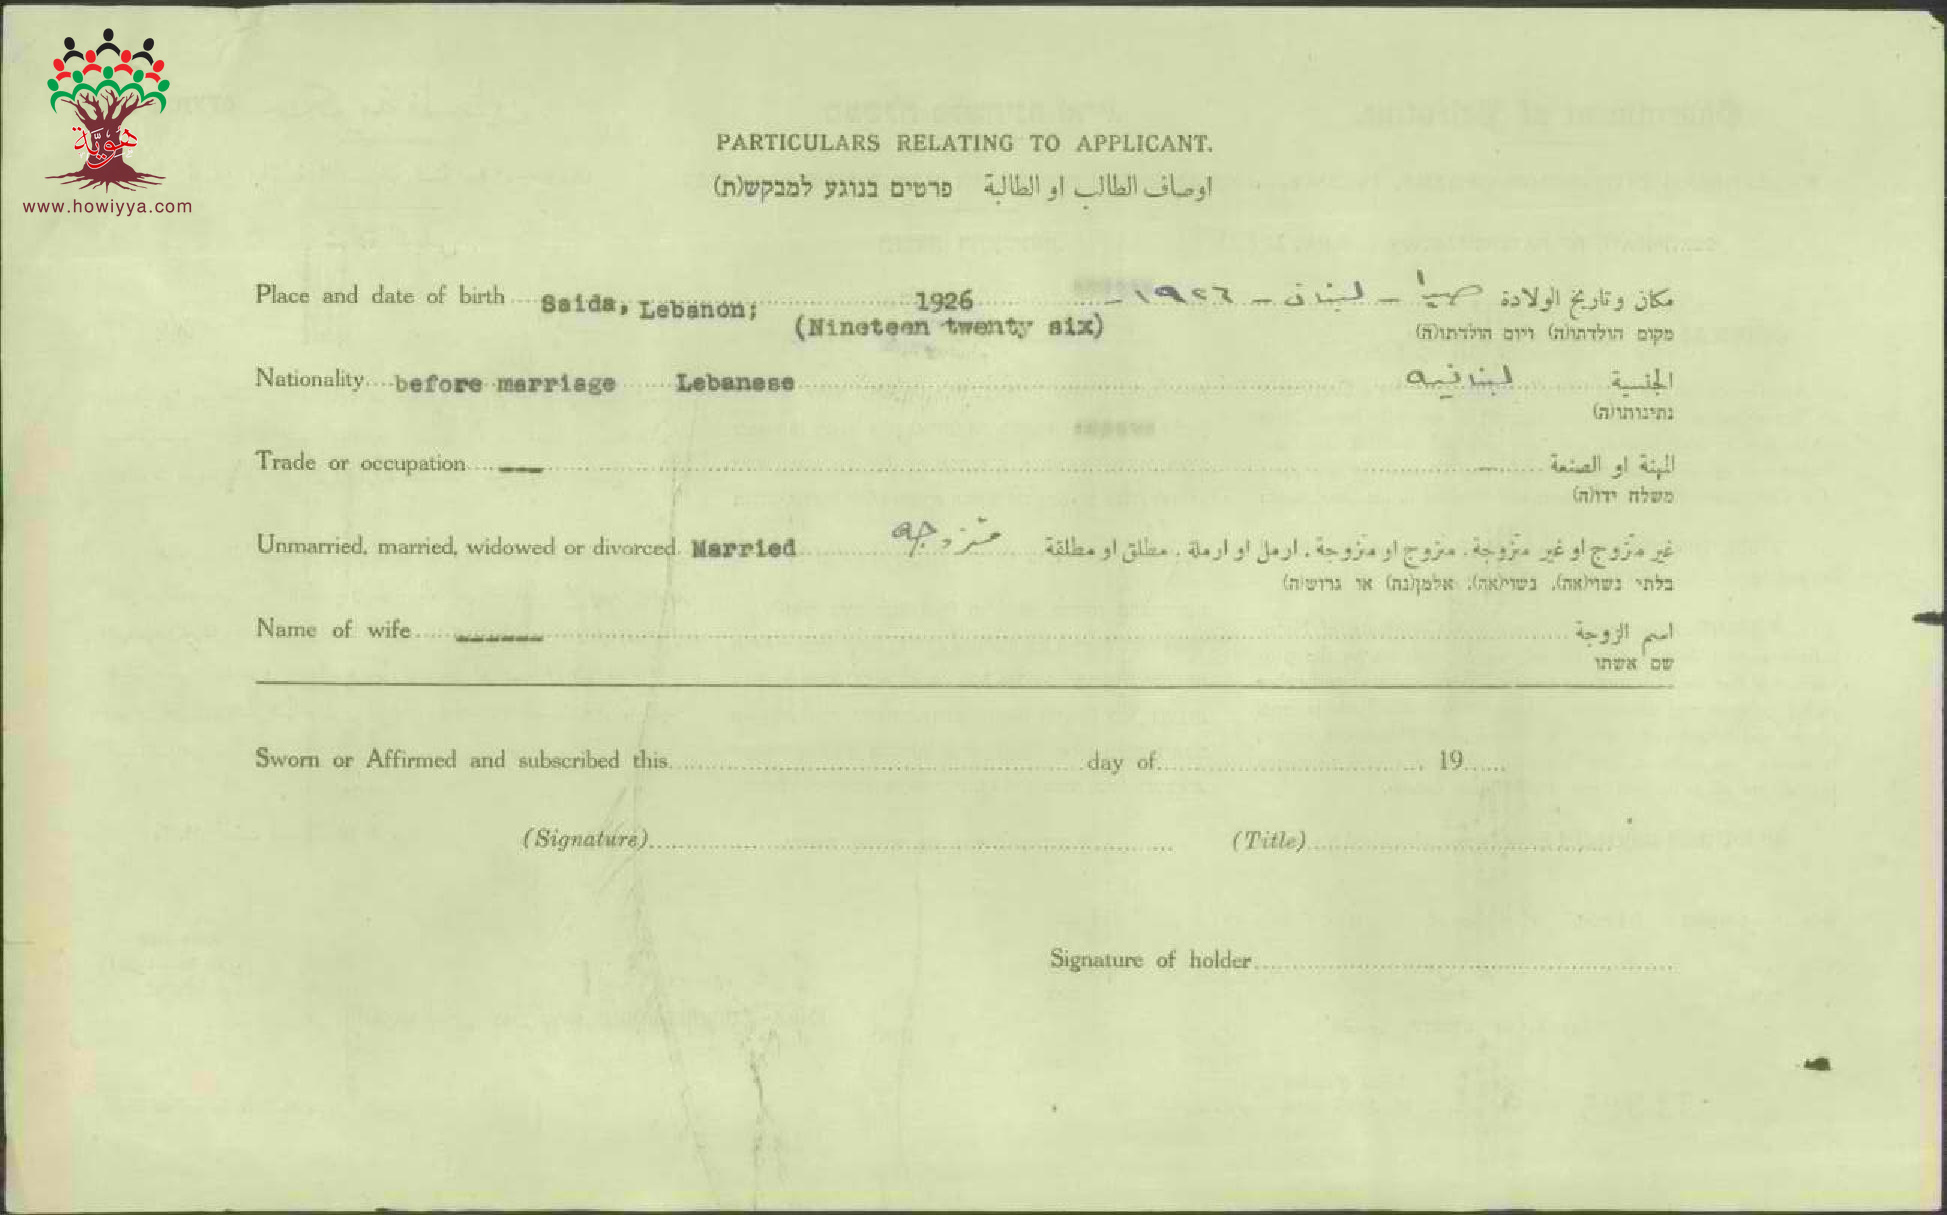 هوية
www.howiyya.com
PARTICULARS RELATING TO APPLICANT.
اوصاف الطالب او الطالبة פרטים בנוגע למבקש(ת)
Place and date of birth Saida, Lebanon; 1926 صيدا - لبنان - ١٩٢٦ - مكان وتاريخ الولادة
(Nineteen twenty six) מקום הולדתו(ה) ויום הולדתו(ה)
Nationality before marriage Lebanese لبنانيه الجنسية
נתינותו(ה)
Trade or occupation --- المهنة او الصنعة
משלח ידו(ה)
Unmarried, married, widowed or divorced. Married متزوجه غير متزوج او غير متزوجة، متزوج او متزوجة، ارمل او ارملة، مطلق او مطلقة
בלתי נשוי(אה), נשוי(אה); אלמן(נה) או גרוש(ה)
Name of wife ------ اسم الزوجة
שם אשתו
Sworn or Affirmed and subscribed this day of 19
(Signature) (Title)
Signature of holder